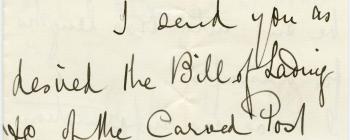 I send you as
desired the Bill of Lading
&c of the Carved Post